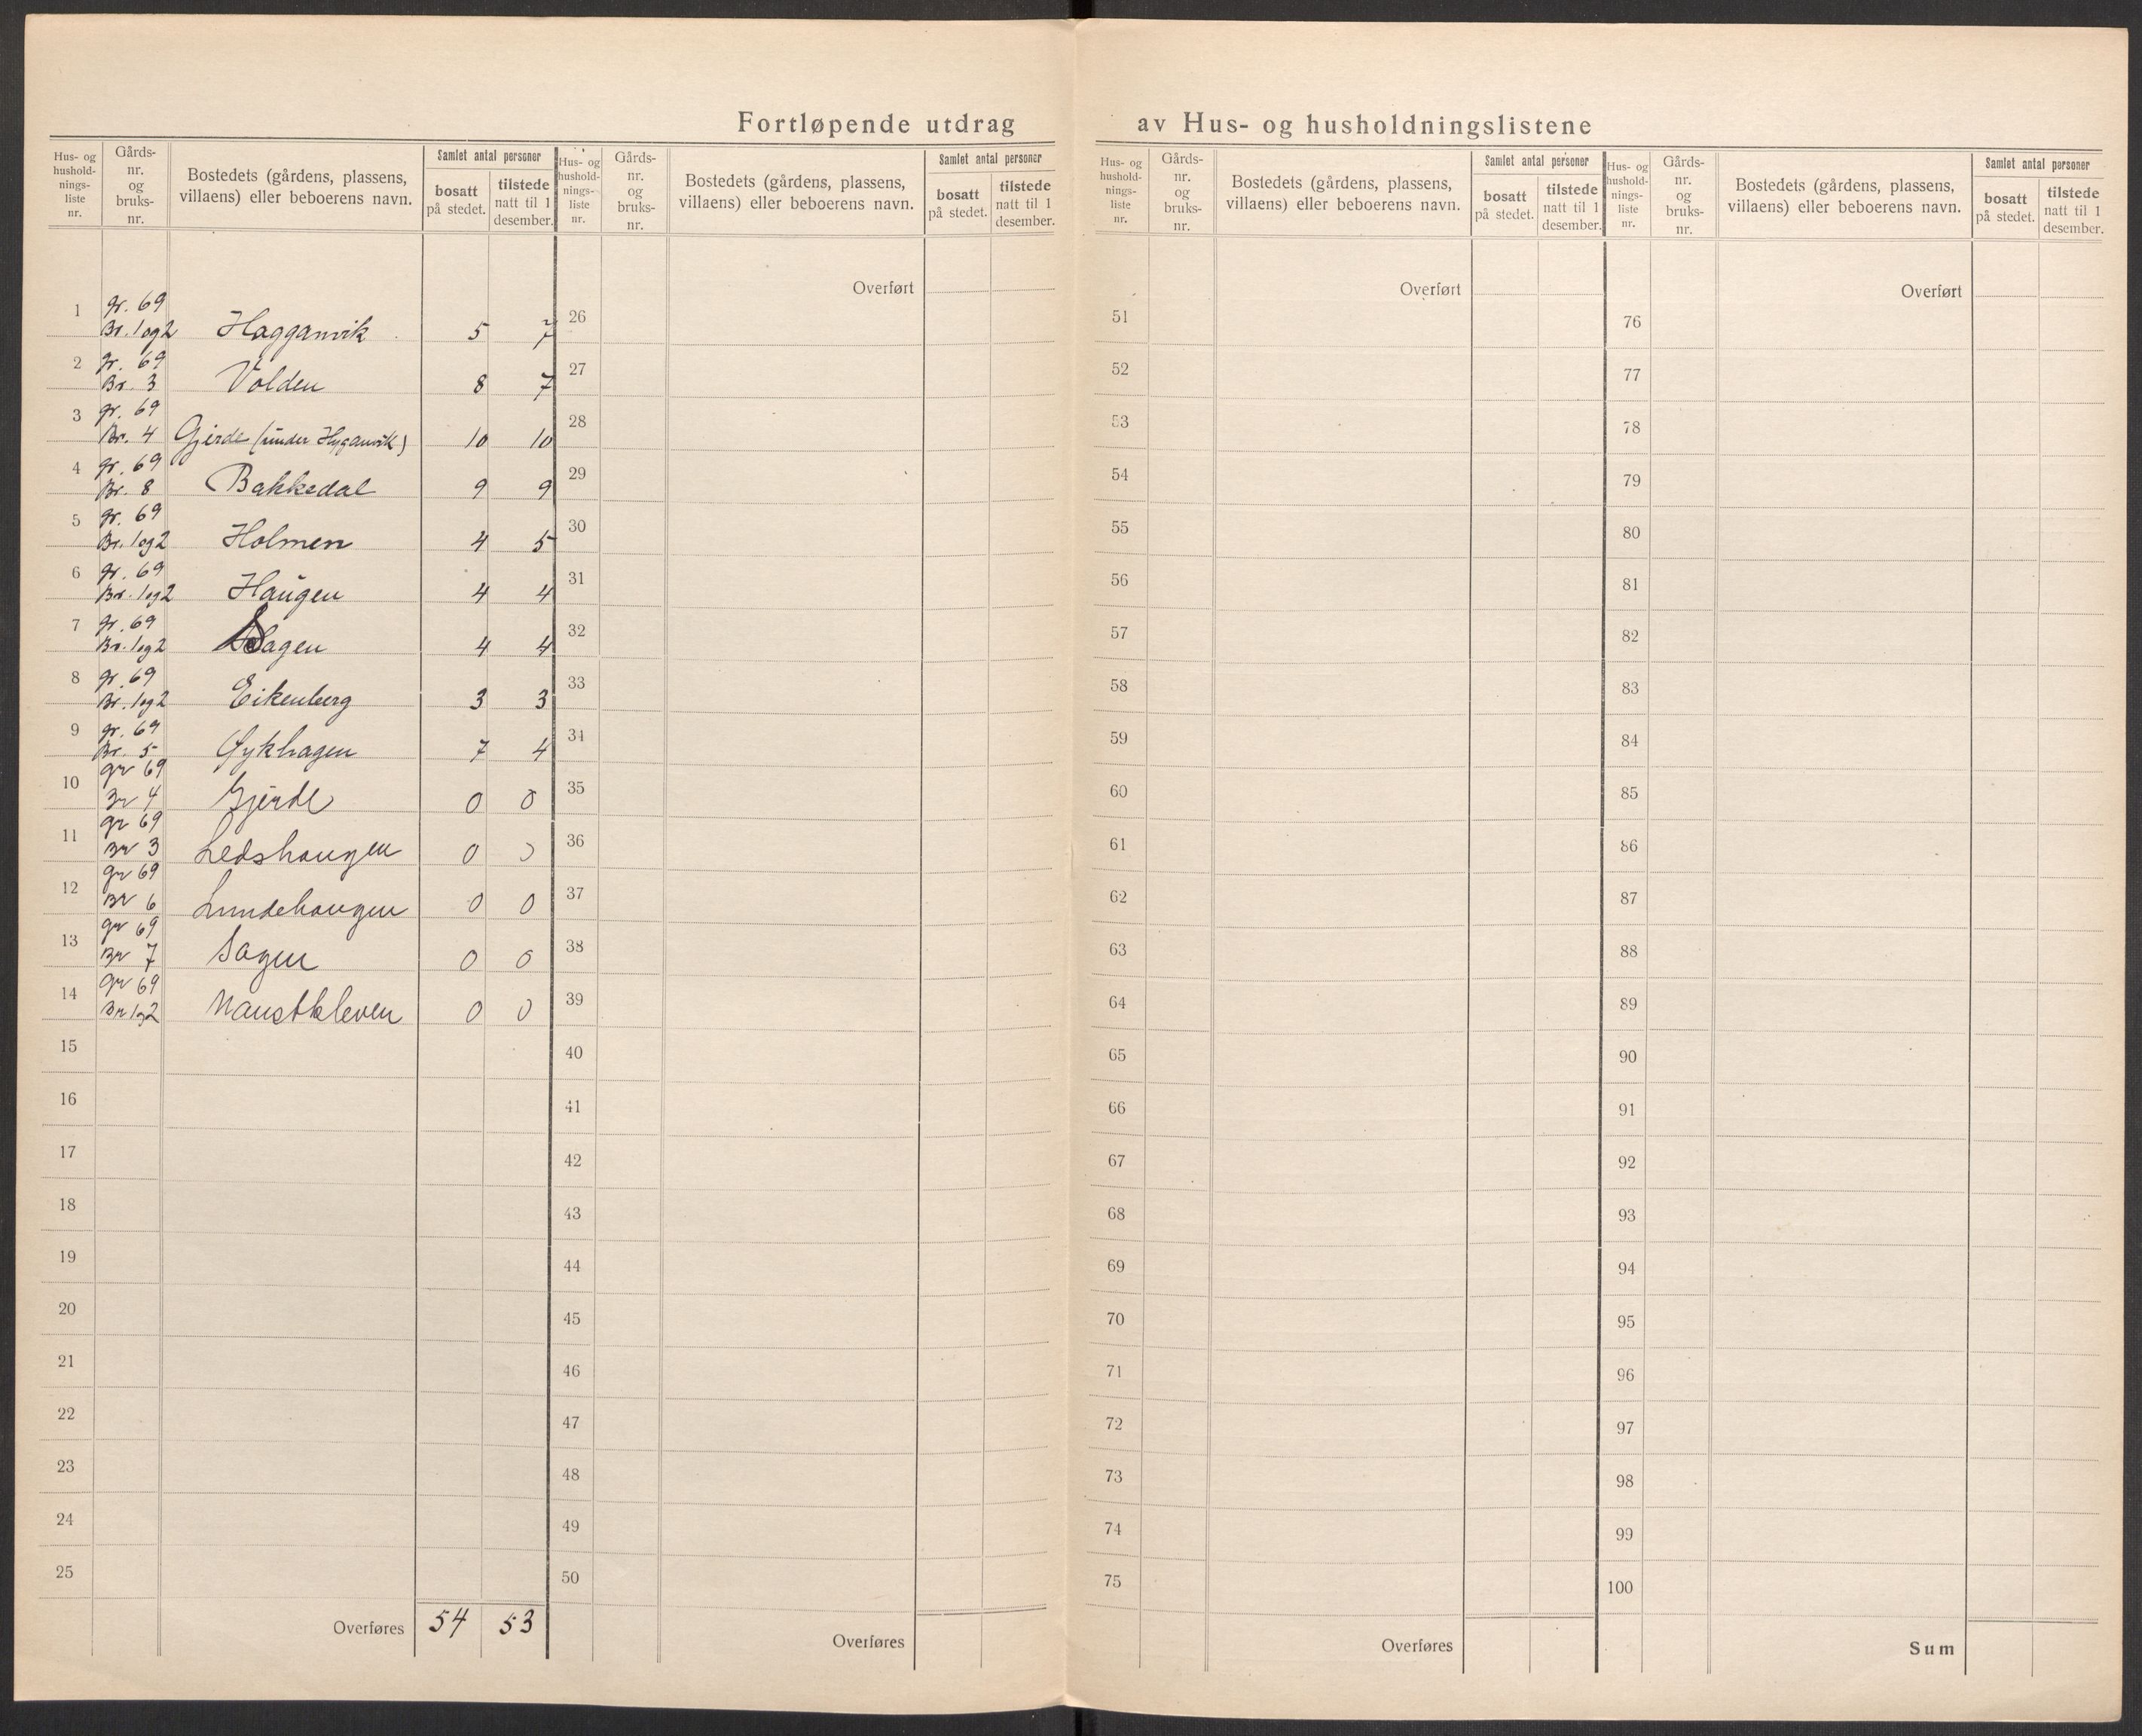 Fortløpende utdrag av Hus- og husholdningslistene
Hus- og hushold- nings- liste nr.
Gårds- nr. og bruks- nr.
Bostedets (gårdens, plassens, villaens) eller beboerens navn.
Samlet antal personer
bosatt på stedet.
tilstede natt til 1 desember.
Hus- og hushold- nings- liste nr.
Gårds- nr. og bruks- nr.
Bostedets (gårdens, plassens, villaens) eller beboerens navn.
Samlet antal personer
bosatt på stedet.
tilstede natt til 1 desember.
Hus- og hushold- nings- liste nr.
Gårds- nr. og bruks- nr.
Bostedets (gårdens, plassens, villaens) eller beboerens navn.
Samlet antal personer
bosatt på stedet.
tilstede natt til 1 desember.
Hus- og hushold- nings- liste nr.
Gårds- nr. og bruks- nr.
Bostedets (gårdens, plassens, villaens) eller beboerens navn.
Samlet antal personer
bosatt på stedet.
tilstede natt til 1 desember.
1 gr. 69 Br. 1 og 2 Hagganvik 5 7
2 gr. 69 Br. 3 Volden 8 7
3 gr. 69 Br. 4 Gjerde (under Hygganvik) 10 10
4 gr. 69 Br. 8 Bakkedal 9 9
5 gr. 69 Br. 1 og 2 Holmen 4 5
6 gr. 69 Br. 1 og 2 Haugen 4 4
7 gr. 69 Br. 1 og 2 Sagen 4 4
8 gr. 69 Br. 1 og 2 Eikenberg 3 3
9 gr. 69 Br. 5 Øykhagen 7 4
10 gr 69 Br 4 Gjerde 0 0
11 gr 69 Br 3 Ledshaugen 0 0
12 gr 69 Br 6 Lundehaugen 0 0
13 gr 69 Br 7 Sagen 0 0
14 gr 69 Br 1 og 2 Naustkleven 0 0
15
16
17
18
19
20
21
22
23
24
25
Overføres 54 53
Overført
26
27
28
29
30
31
32
33
34
35
36
37
38
39
40
41
42
43
44
45
46
47
48
49
50
Overføres
Overført
51
52
53
54
55
56
57
58
59
60
61
62
63
64
65
66
67
68
69
70
71
72
73
74
75
Overføres
Overført
76
77
78
79
80
81
82
83
84
85
86
87
88
89
90
91
92
93
94
95
96
97
98
99
100
Sum